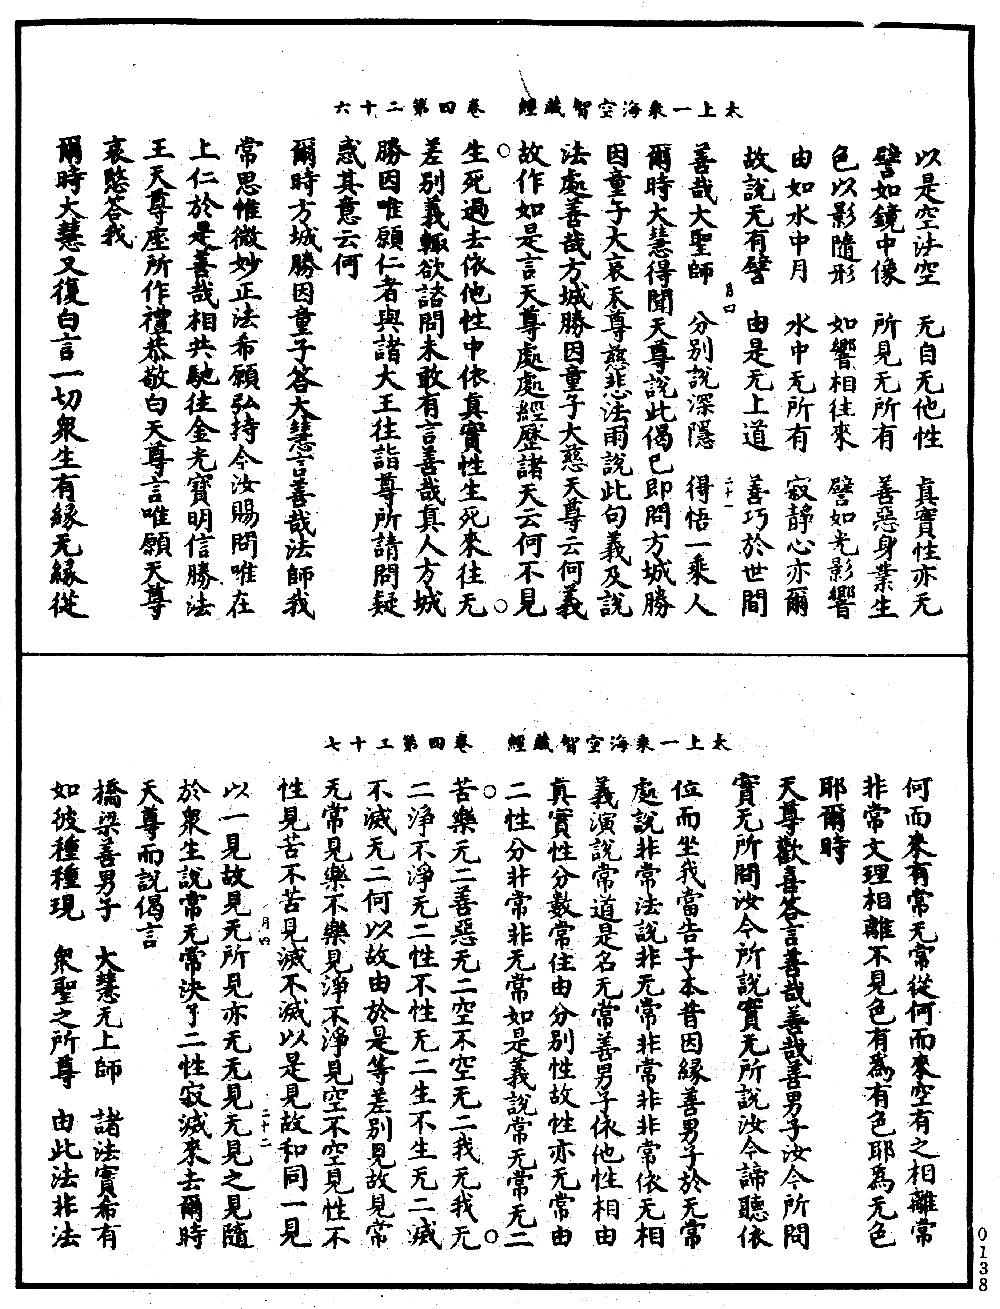 太上一乘海空智藏經　卷四第二十六
以是空法空　无自无他性　真實性亦无
譬如鏡中像　所見无所有　善惡身業生
色以影隨形　如響相往來　譬如光影響
由如水中月　水中无所有　寂靜心亦爾
故說无有譬　由是无上道　善巧於世間
月四
善哉大聖師　分別說深隱　得悟一乘人
二十一
爾時大慧得聞天尊說此偈已即問方城勝
因童子大哀天尊慈悲法雨說此句義及說
法處善哉方城勝因童子大慈天尊云何義
故作如是言天尊處處經歷諸天云何不見
生死過去依他性中依真實性生死來往无
差別義輒欲諮問未敢有言善哉真人方城
勝因唯願仁者與諸大王往詣尊所請問疑
惑其意云何
爾時方城勝因童子答大慧言善哉法師我
常思惟微妙正法希願弘持今汝賜問唯在
上仁於是善哉相共馳往金光寶明信勝法
王天尊座所作禮恭敬白天尊言唯願天尊
哀愍答我
爾時大慧又復白言一切眾生有緣无緣從
太上一乘海空智藏經　卷四第二十七
何而來有常无常從何而來空有之相離常
非常文理相離不見色有為有色耶為无色
耶爾時
天尊歡喜答言善哉善哉善男子汝今所問
實无所問汝今所說實无所說汝今諦聽依
位而坐我當告子本昔因緣善男子於无常
處說非常法說非无常非常非非常依无相
義演說常道是名无常善男子依他性相由
真實性分數常住由分別性故性亦无常由
二性分非常非无常如是義說常无常无二
苦樂无二善惡无二空不空无二我无我无
二淨不淨无二性不性无二生不生无二滅
不滅无二何以故由於是等差別見故見常
无常見樂不樂見淨不淨見空不空見性不
性見苦不苦見滅不滅以是見故和同一見
月四
二十二
以一見故見无所見亦无无見无見之見隨
於眾生說常无常決了二性寂滅來去爾時
天尊而說偈言
橋梁善男子　大慧无上師　諸法實希有
如彼種種現　眾聖之所尊　由此法非法
0138